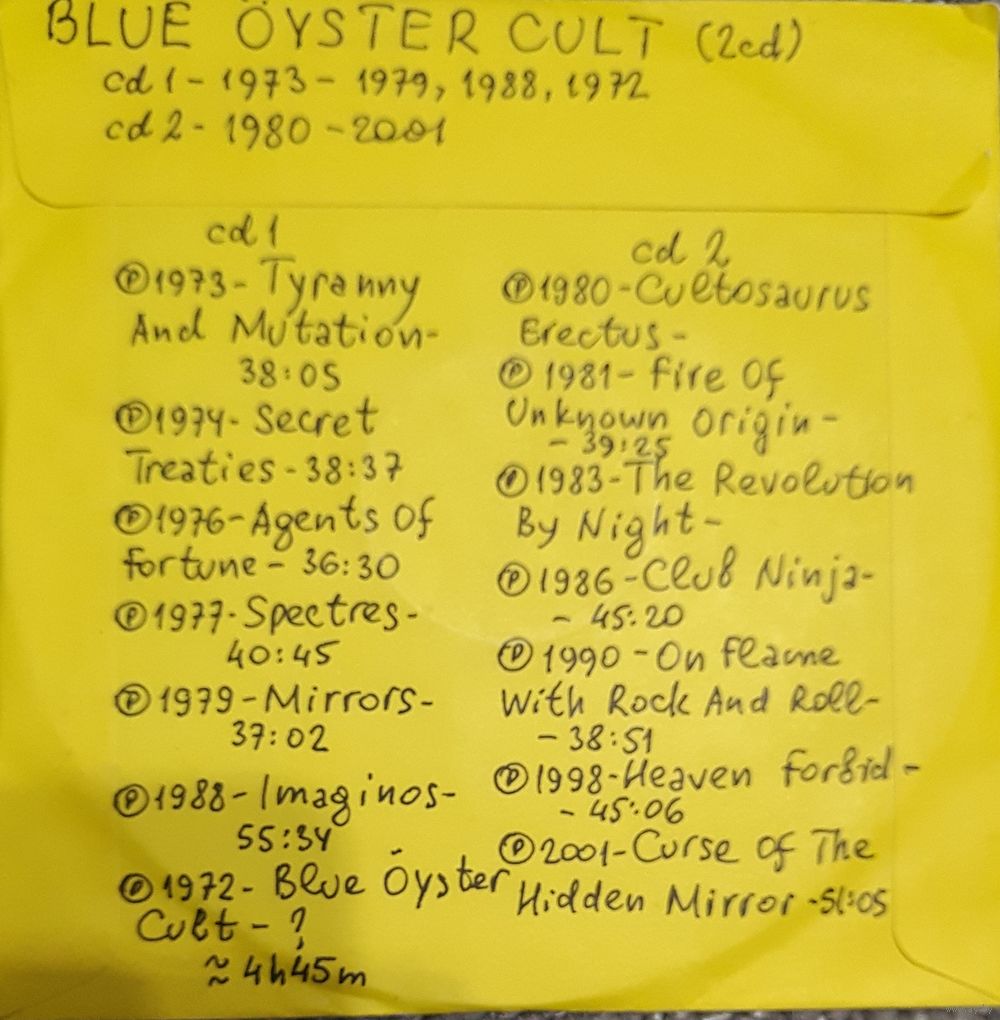 BLUE ÖYSTER CULT (2cd)
cd 1 - 1973 - 1979, 1988, 1972
cd 2 - 1980 - 2001
cd 1
Ⓟ1973- Tyranny
And Mutation-
38:05
Ⓟ1974- Secret
Treaties - 38:37
Ⓟ1976-Agents Of
Fortune - 36:30
Ⓟ1977-Spectres-
40:45
Ⓟ1979-Mirrors-
37:02
Ⓟ1988-Imaginos-
55:34
Ⓟ1972- Blue Öyster
Cult - ?
≈ 4h45m
cd 2
Ⓟ1980-Cultosaurus
Erectus-
Ⓟ1981- Fire Of
Unknown Origin-
- 39:25
Ⓟ1983-The Revolution
By Night-
Ⓟ1986-Club Ninja-
- 45:20
Ⓟ1990-On Flame
With Rock And Roll-
- 38:51
Ⓟ1998-Heaven Forbid-
- 45:06
Ⓟ2001-Curse Of The
Hidden Mirror -51:05